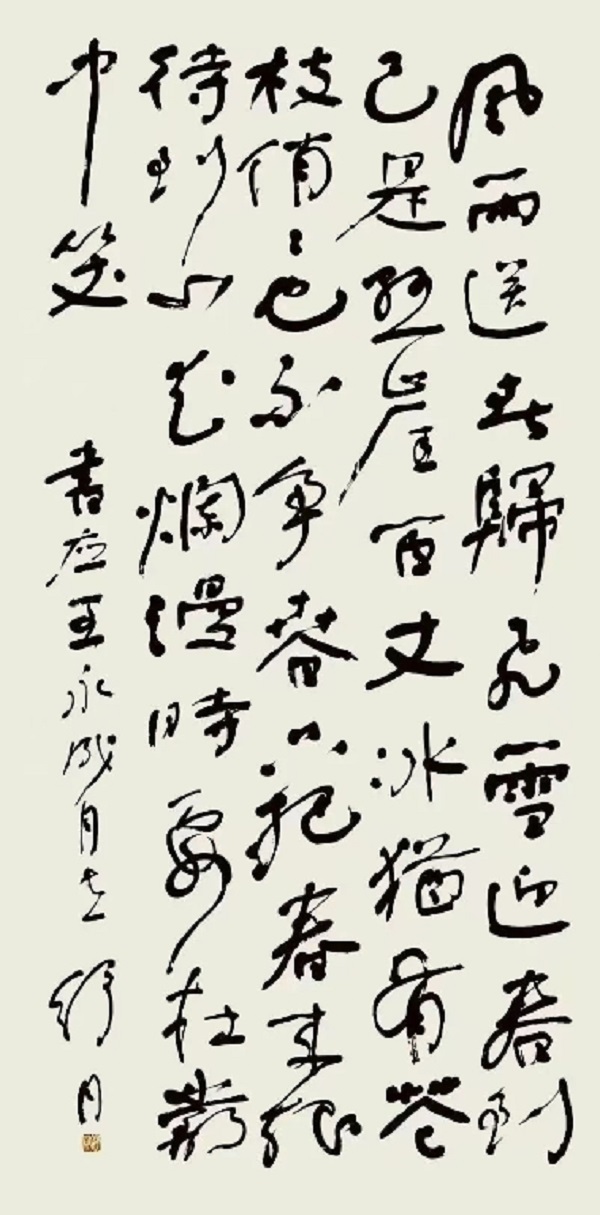 風雨送春歸飛雪迎春到
已是懸崖百丈冰猶有花
枝俏〻也不争春只把春来报
待到山花爛漫時在叢
中笑
書应王永成